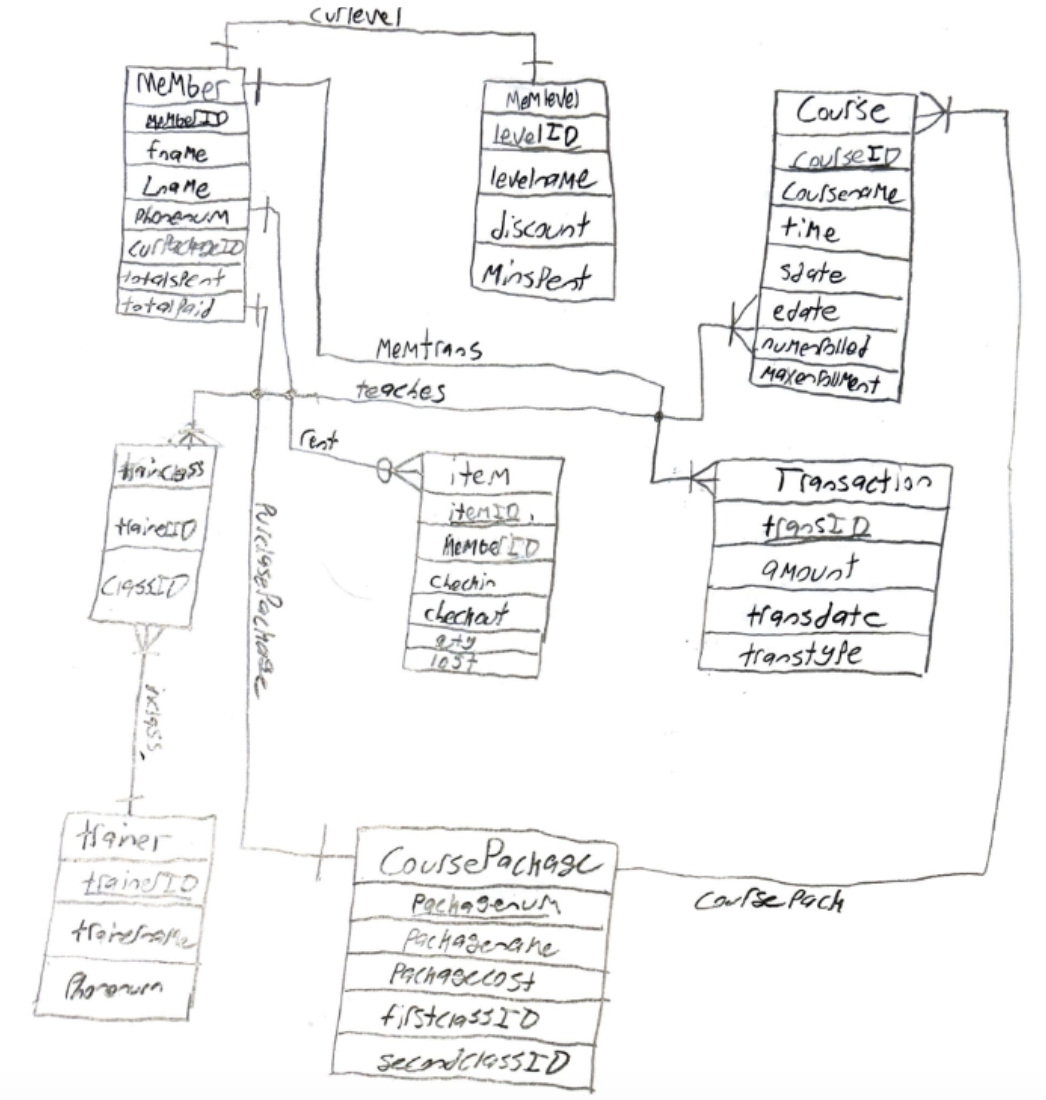 curlevel
Member
MemberID
fname
Lname
Phonenum
curPackageID
totalspent
totalPaid
Memlevel
levelID
levelname
discount
MinsPent
Course
CourseID
Coursename
time
sdate
edate
numenrolled
maxenrollment
Memtrans
teaches
rent
trainclass
trainerID
classID
PurchasePackage
item
itemID
MemberID
checkin
checkout
qty
lost
Transaction
transID
amount
transdate
transtype
inclass
trainer
trainerID
trainername
Phonenum
CoursePackage
Packagenum
Packagename
Packagecost
firstclassID
secondclassID
CoursePack